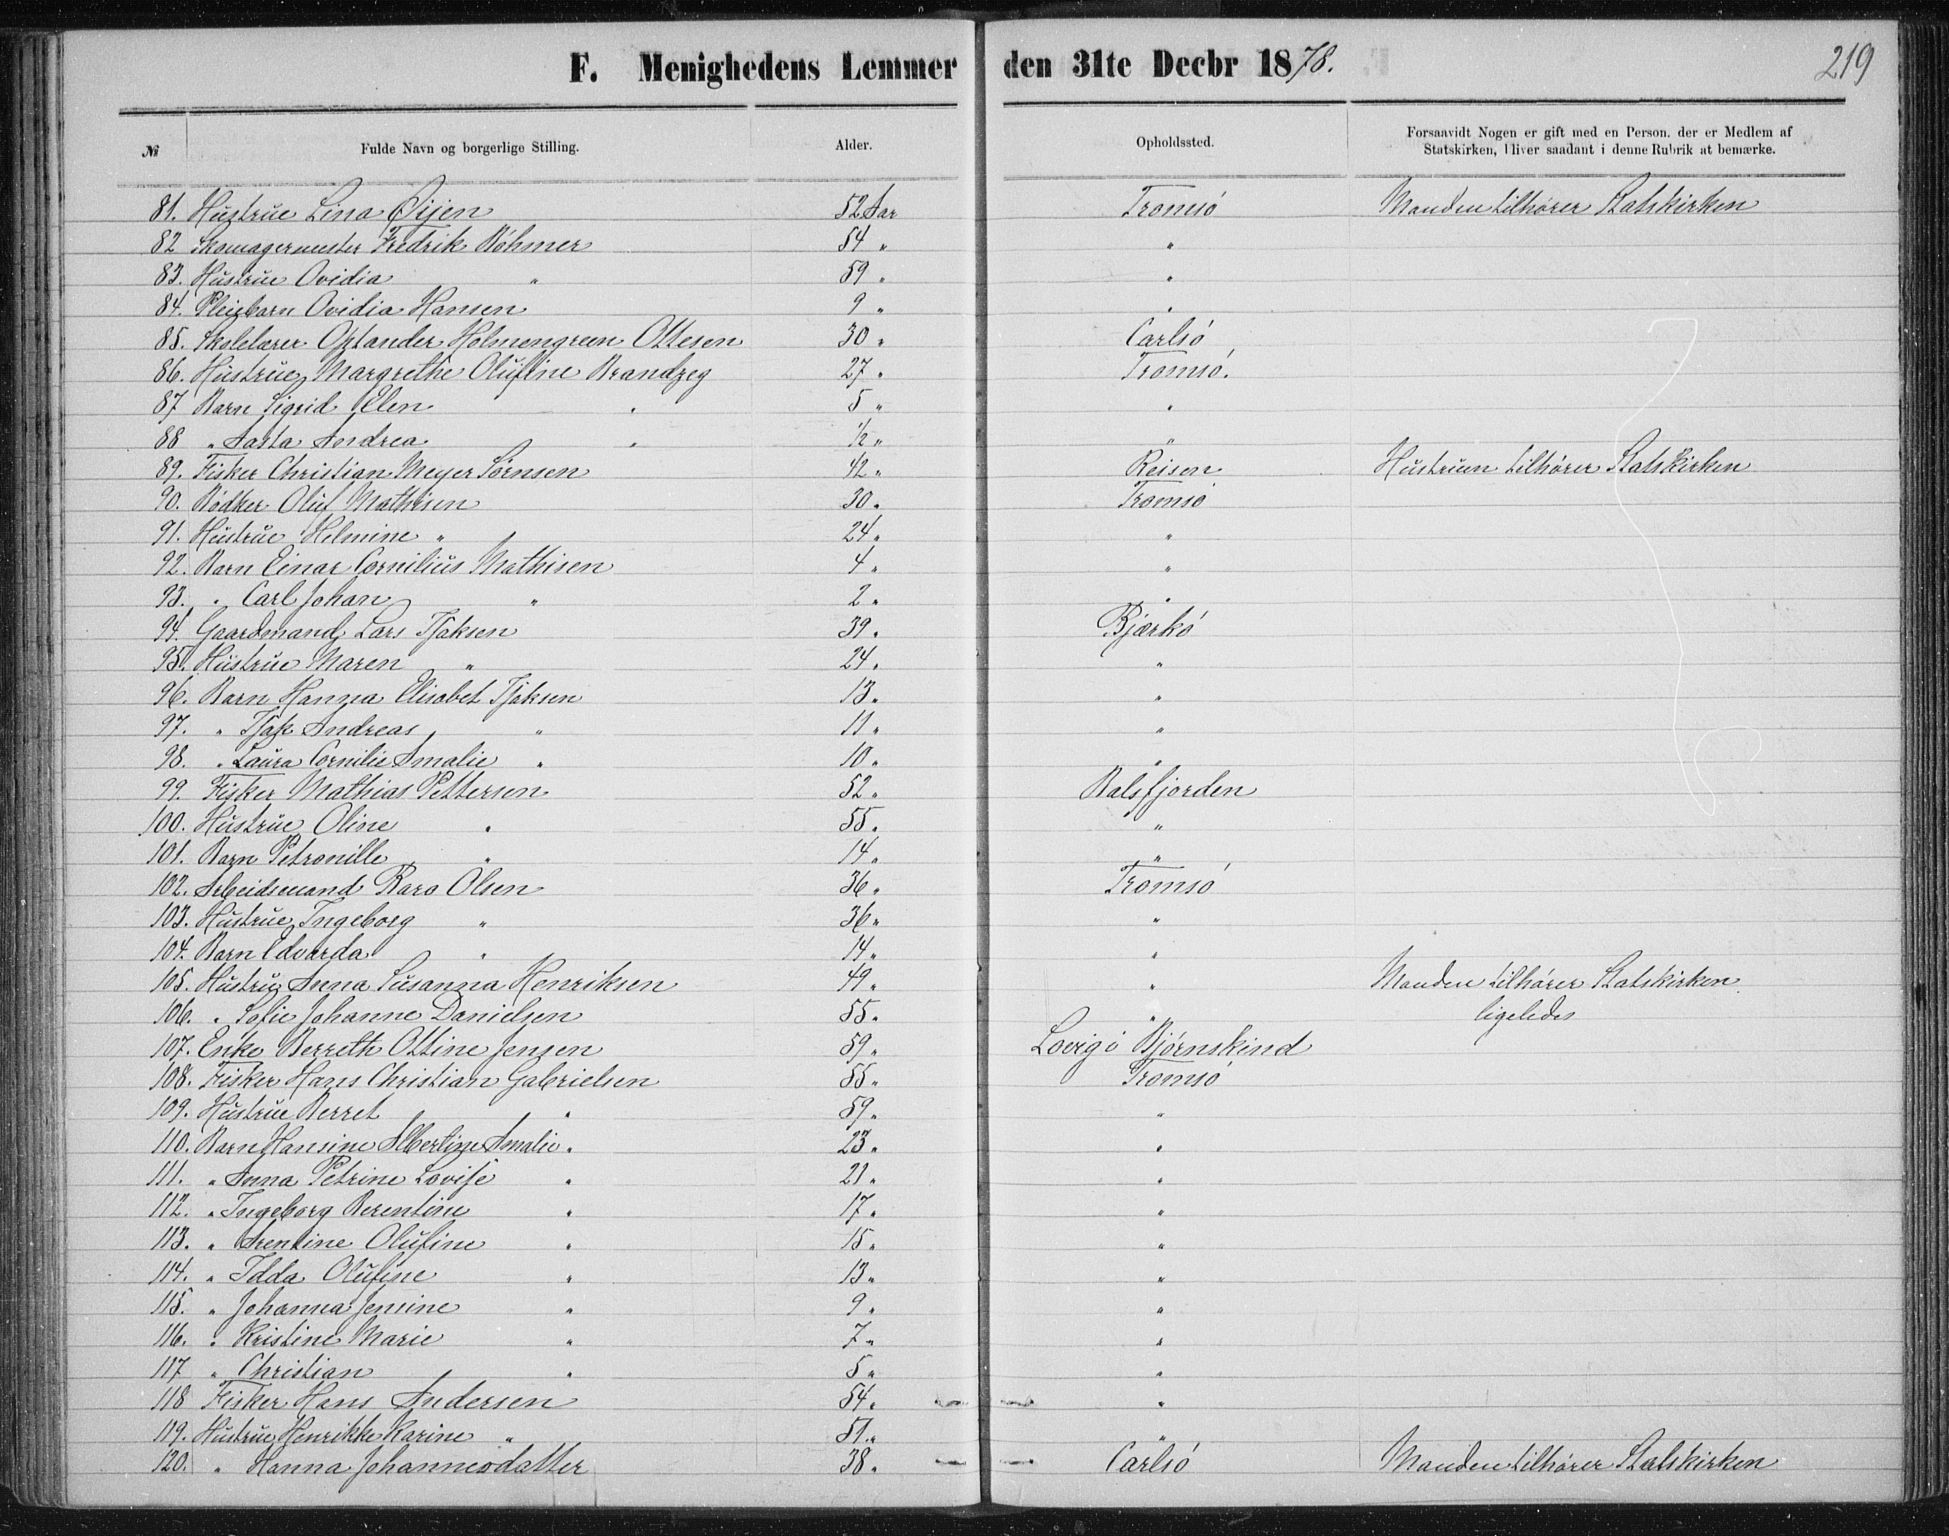 F. Menighedens Lemmer den 31te Decbr 1878. 219
№ Fulde Navn og borgerlige Stilling. Alder. Opholdssted. Forsaavidt Nogen er gift med en Person, der er Medlem af Statskirken, bliver saadant i denne Rubrik at bemærke.
81. Hustrue Lina Øijen 52 Aar Tromsö Manden tilhører Statskirken
82 Skomagermester Fredrik Böhmer 54 " "
83. Hustrue Ovidia " 59 " "
84. Pleiebarn Ovidia Hansen 9 " "
85. Skolelærer Holmengreen Ottesen 30 " Carlsö
86. Hustrue Margrethe Olufine Brandzeg 27 " Tromsö.
87 Barn Sigrid Elen " 5 " "
88 " Aasta Andrea " 1/2 " "
89. Fisker Christian Meyer Sørnsen 42 " Reisen Hustruen tilhører Statskirken
90. Bödker Oluf Mathisen 30 " Tromsö
91. Hustrue Helmine " 24 " "
92. Barn Einar Cornilius Mathisen 4 " "
93. " Carl Johan " 2 " "
94. Gaardmand Lars Tjaksen 39 " Bjærkö
95. Hustrue Maren " 24 " "
96. Barn Hanna Elisabet Tjaksen 13 " "
97. " Tjak Andreas " 11 " "
98. " Laura Cornilie Amalie " 10 " "
99. Fisker Mathias Pettersen 52 " Balsfjorden
100. Hustrue Oline " 55 " "
101. Barn Petronille " 14 " "
102. Arbeidsmand Baro Olsen 36 " Tromsö
103. Hustrue Ingeborg " 36 " "
104. Barn Edvarda " 14 " "
105. Hustru Anna Susanna Henriksen 49 " " Manden tilhører Statskirken
106. " Sofie Johanne Danielsen 55 " " ligeledes
107. Enke Berreth Ottine Jensen 59 " Bjørnskind
108. Fisker Hans Christian Gabrielsen 55 " Tromsö
109. Hustrue Berret " 59 " "
110. Barn Hansine Albertine Amalie " 23 " "
111. " Anna Petrine Lovise " 21 " "
112. " Ingeborg Berentine " 17 " "
113. " Arentine Olufine " 15 " "
114. " Idda Olufine " 13 " "
115. " Johanna Jensine " 9 " "
116. " Kristine Marie " 7 " "
117 " Christian " 5 " "
118 Fisker Hans Andersen 54 " "
119. Hustrue Henrikke Karine " 51 " "
120. " Hanna Johannesdatter 38 " Carlsö Manden tilhører Statskirken